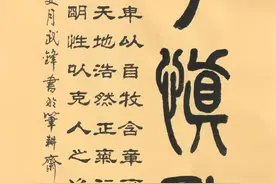 慎
卑以自牧含章
天地浩然正氣
明性以克人之
月武鋒書於筆耕齋